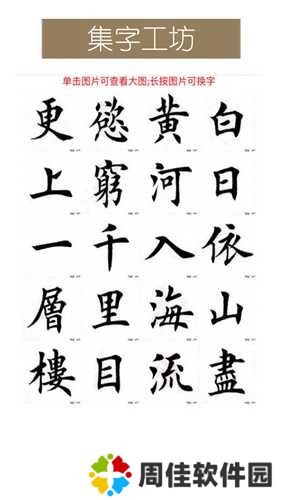 集字工坊
单击图片可查看大图;长按图片可换字
白日依山盡
黄河入海流
欲窮千里目
更上一層樓
周佳软件园